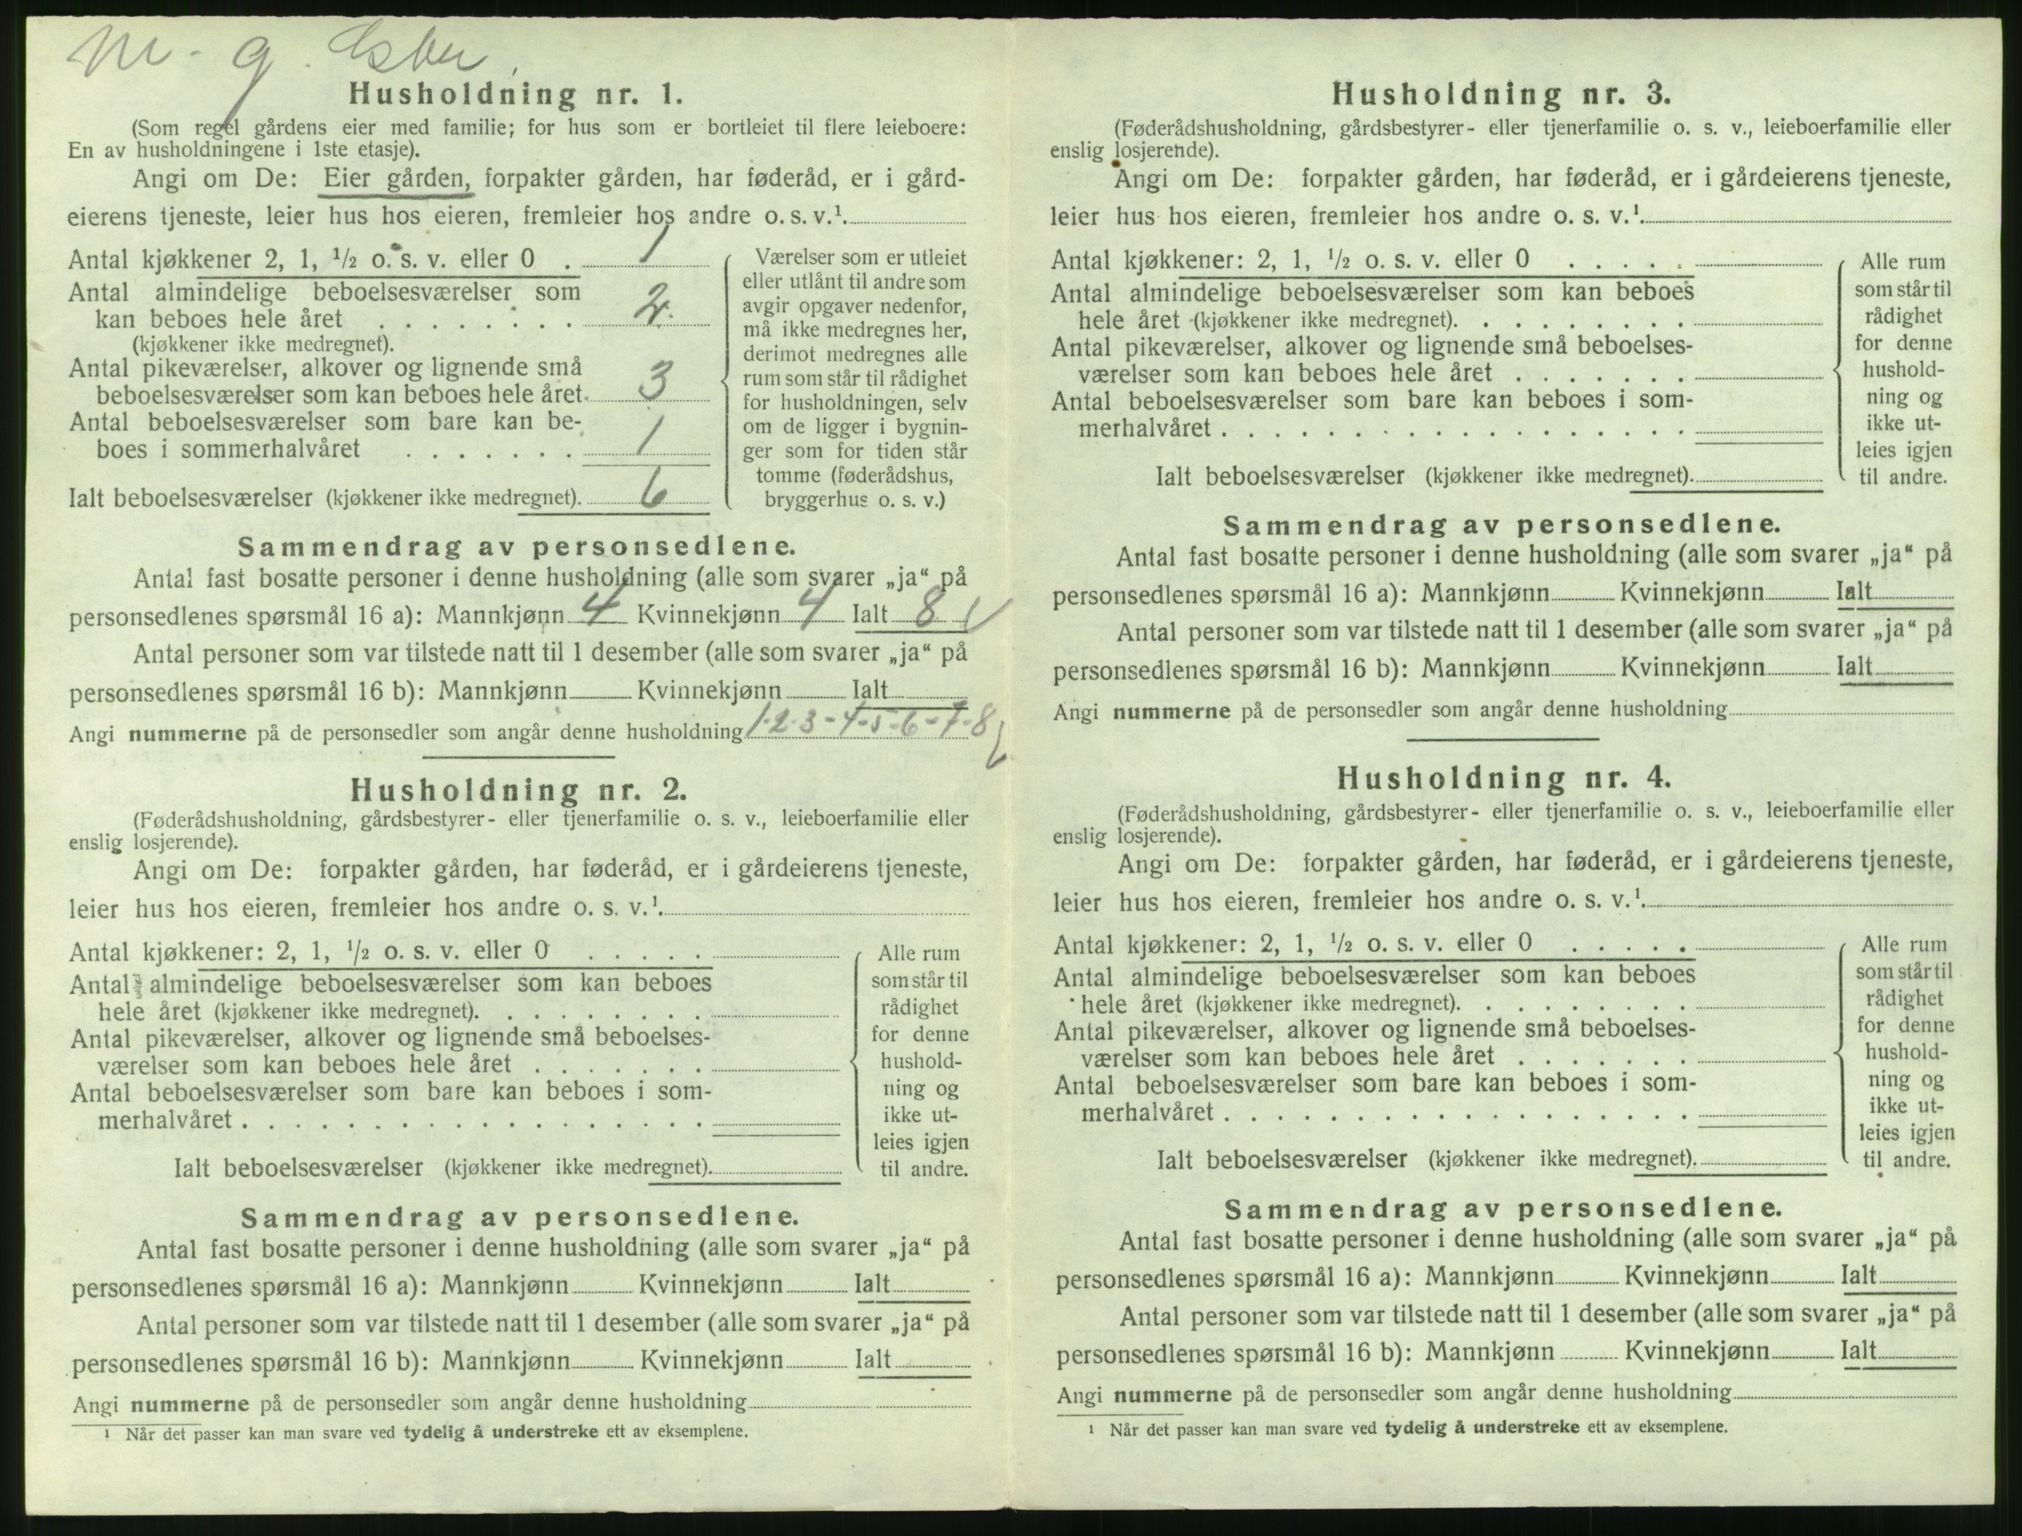 Husholdning nr. 1.
(Som regel gårdens eier med familie; for hus som er bortleiet til flere leieboere:
En av husholdningene i 1ste etasje).
Angi om De: Eier gården, forpakter gården, har føderåd, er i gård-
eierens tjeneste, leier hus hos eieren, fremleier hos andre o. s. v.¹.
Antal kjøkkener 2, 1, ½ o. s. v. eller 0 . 1
Antal almindelige beboelsesværelser som
kan beboes hele året . . . . . . . . 2
(kjøkkener ikke medregnet).
Antal pikeværelser, alkover og lignende små
beboelsesværelser som kan beboes hele året. 3
Antal beboelsesværelser som bare kan be-
boes i sommerhalvåret . . . . . . . 1
Ialt beboelsesværelser (kjøkkener ikke medregnet). 6
Værelser som er utleiet
eller utlånt til andre som
avgir opgaver nedenfor,
må ikke medregnes her,
derimot medregnes alle
rum som står til rådighet
for husholdningen, selv
om de ligger i bygnin-
ger som for tiden står
tomme (føderådshus,
bryggerhus o. s. v.)
Sammendrag av personsedlene.
Antal fast bosatte personer i denne husholdning (alle som svarer „ja“ på
personsedlenes spørsmål 16 a): Mannkjønn 4 Kvinnekjønn 4 Ialt 8
Antal personer som var tilstede natt til 1 desember (alle som svarer „ja“ på
personsedlenes spørsmål 16 b): Mannkjønn Kvinnekjønn Ialt
Angi nummerne på de personsedler som angår denne husholdning 1-2-3-4-5-6-7-8
Husholdning nr. 2.
(Føderådshusholdning, gårdsbestyrer- eller tjenerfamilie o. s. v., leieboerfamilie eller
enslig losjerende).
Angi om De: forpakter gården, har føderåd, er i gårdeierens tjeneste,
leier hus hos eieren, fremleier hos andre o. s. v.¹.
Antal kjøkkener: 2, 1, ½ o. s. v. eller 0 . . . . .
Antal almindelige beboelsesværelser som kan beboes
hele året (kjøkkener ikke medregnet). . . . . . . . .
Antal pikeværelser, alkover og lignende små beboelses-
værelser som kan beboes hele året . . . . . . .
Antal beboelsesværelser som bare kan beboes i som-
merhalvåret . . . . . . . . . . . . . . . . . .
Ialt beboelsesværelser (kjøkkener ikke medregnet).
Alle rum
som står til
rådighet
for denne
hushold-
ning og
ikke ut-
leies igjen
til andre.
Sammendrag av personsedlene.
Antal fast bosatte personer i denne husholdning (alle som svarer „ja“ på
personsedlenes spørsmål 16 a): Mannkjønn Kvinnekjønn Ialt
Antal personer som var tilstede natt til 1 desember (alle som svarer „ja“ på
personsedlenes spørsmål 16 b): Mannkjønn Kvinnekjønn Ialt
Angi nummerne på de personsedler som angår denne husholdning
¹ Når det passer kan man svare ved tydelig å understreke ett av eksemplene.
Husholdning nr. 3.
(Føderådshusholdning, gårdsbestyrer- eller tjenerfamilie o. s. v., leieboerfamilie eller
enslig losjerende).
Angi om De: forpakter gården, har føderåd, er i gårdeierens tjeneste,
leier hus hos eieren, fremleier hos andre o. s. v.¹.
Antal kjøkkener: 2, 1, ½ o. s. v. eller 0 . . . . .
Antal almindelige beboelsesværelser som kan beboes
hele året (kjøkkener ikke medregnet). . . . . . . . .
Antal pikeværelser, alkover og lignende små beboelses-
værelser som kan beboes hele året . . . . . . .
Antal beboelsesværelser som bare kan beboes i som-
merhalvåret . . . . . . . . . . . . . . . . . .
Ialt beboelsesværelser (kjøkkener ikke medregnet).
Alle rum
som står til
rådighet
for denne
hushold-
ning og
ikke ut-
leies igjen
til andre.
Sammendrag av personsedlene.
Antal fast bosatte personer i denne husholdning (alle som svarer „ja“ på
personsedlenes spørsmål 16 a): Mannkjønn Kvinnekjønn Ialt
Antal personer som var tilstede natt til 1 desember (alle som svarer „ja“ på
personsedlenes spørsmål 16 b): Mannkjønn Kvinnekjønn Ialt
Angi nummerne på de personsedler som angår denne husholdning
Husholdning nr. 4.
(Føderådshusholdning, gårdsbestyrer- eller tjenerfamilie o. s. v., leieboerfamilie eller
enslig losjerende).
Angi om De: forpakter gården, har føderåd, er i gårdeierens tjeneste,
leier hus hos eieren, fremleier hos andre o. s. v.¹.
Antal kjøkkener: 2, 1, ½ o. s. v. eller 0 . . . . .
Antal almindelige beboelsesværelser som kan beboes
hele året (kjøkkener ikke medregnet). . . . . . . . .
Antal pikeværelser, alkover og lignende små beboelses-
værelser som kan beboes hele året . . . . . . .
Antal beboelsesværelser som bare kan beboes i som-
merhalvåret . . . . . . . . . . . . . . . . . .
Ialt beboelsesværelser (kjøkkener ikke medregnet).
Alle rum
som står til
rådighet
for denne
hushold-
ning og
ikke ut-
leies igjen
til andre.
Sammendrag av personsedlene.
Antal fast bosatte personer i denne husholdning (alle som svarer „ja“ på
personsedlenes spørsmål 16 a): Mannkjønn Kvinnekjønn Ialt
Antal personer som var tilstede natt til 1 desember (alle som svarer „ja“ på
personsedlenes spørsmål 16 b): Mannkjønn Kvinnekjønn Ialt
Angi nummerne på de personsedler som angår denne husholdning
¹ Når det passer kan man svare ved tydelig å understreke ett av eksemplene.